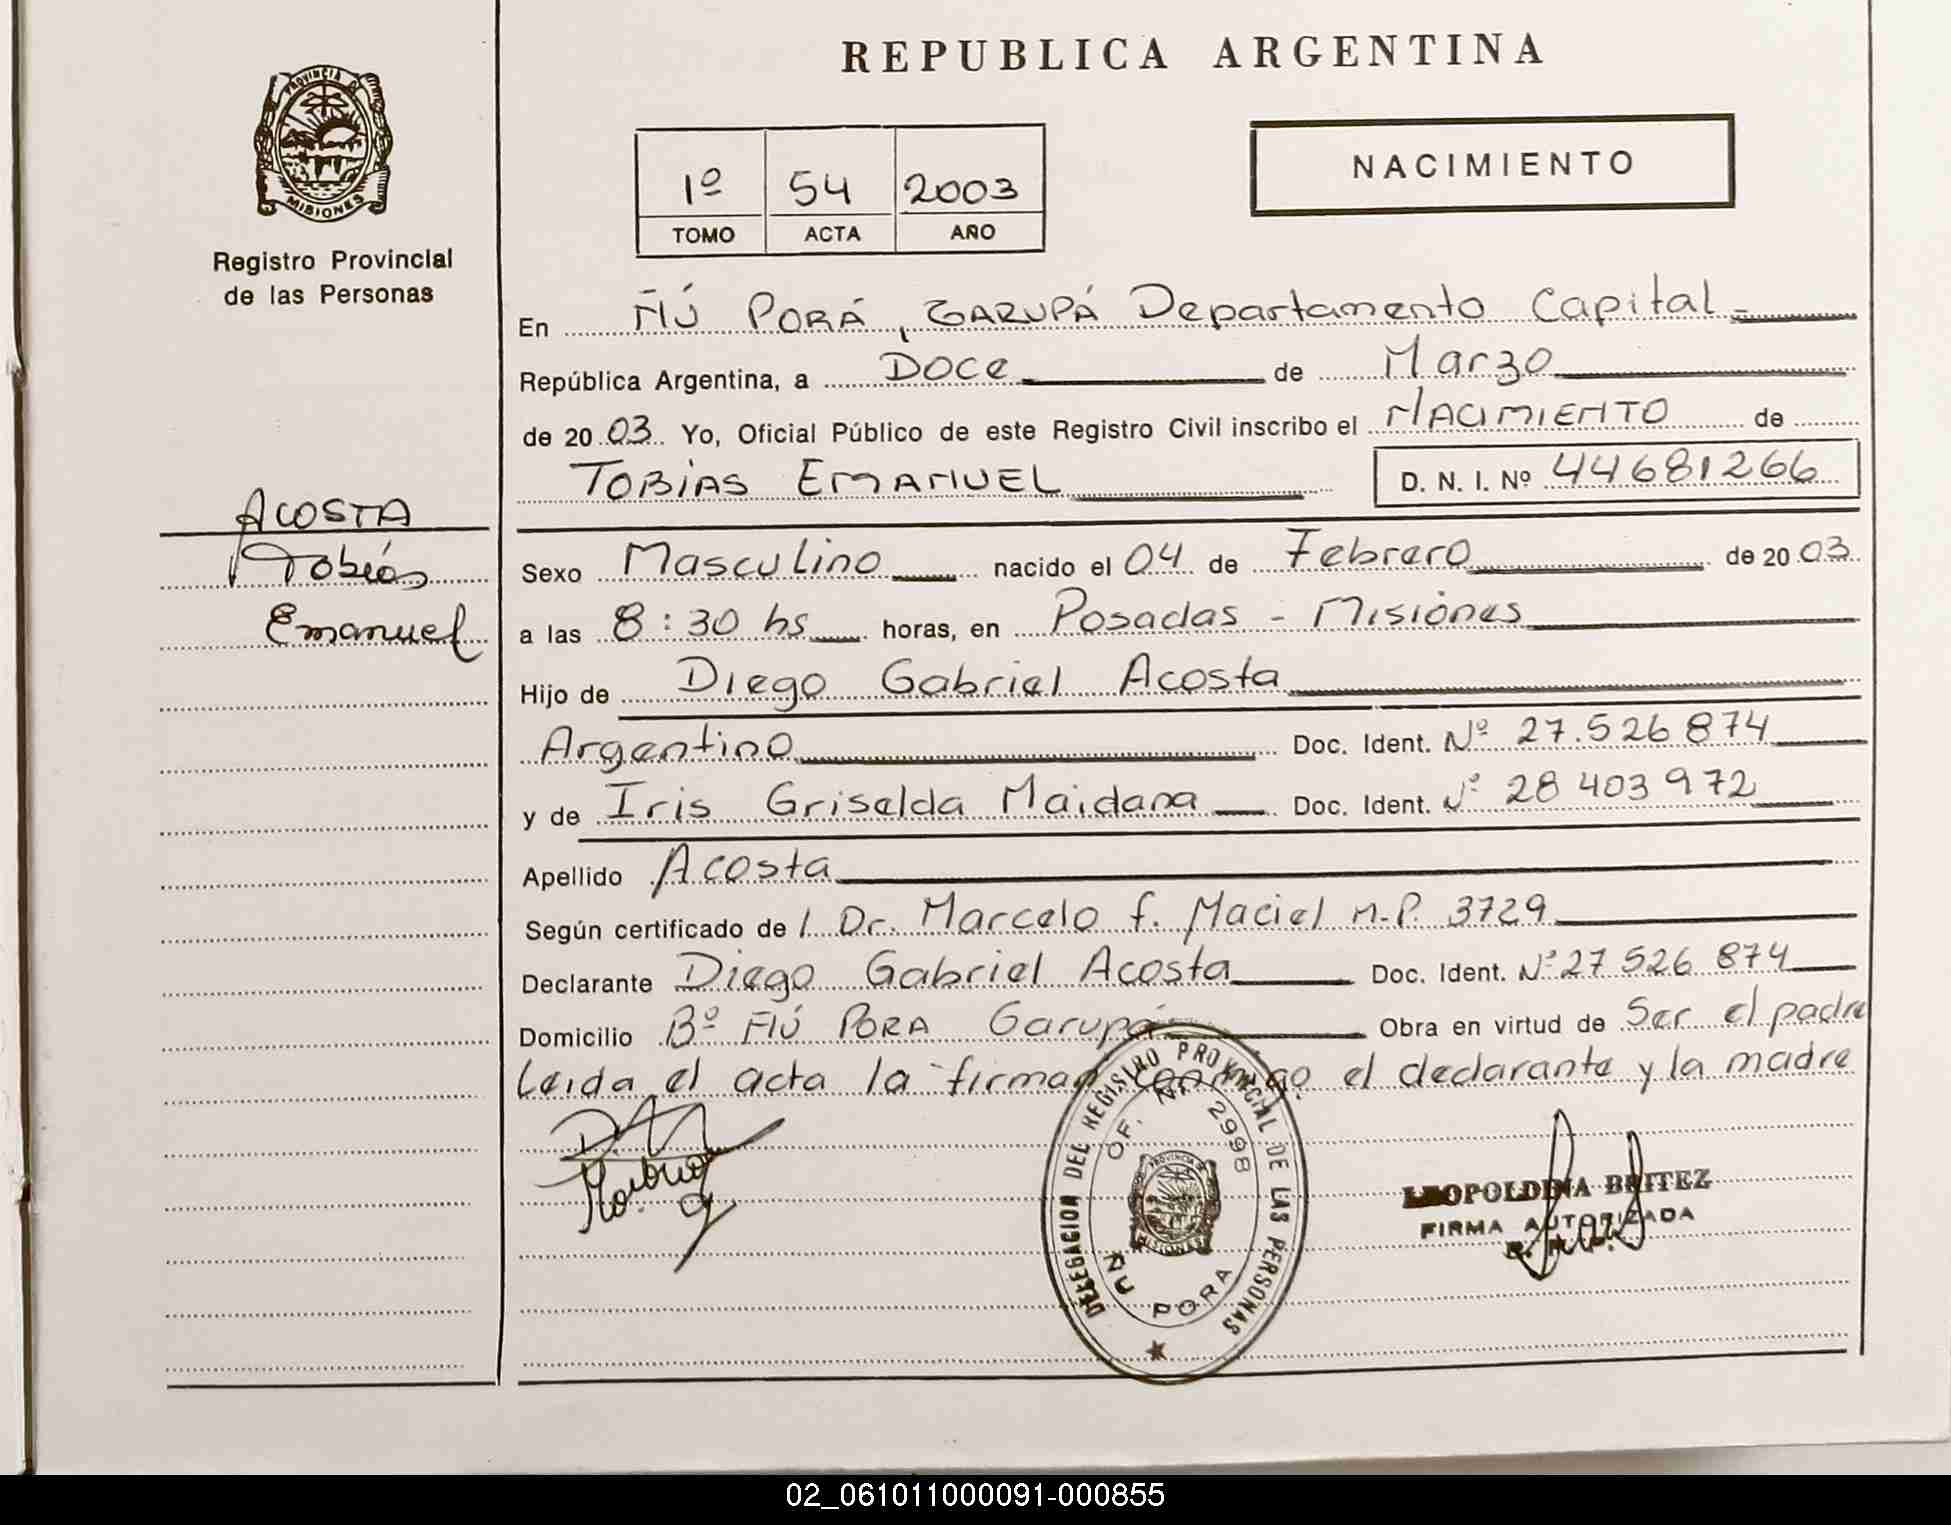 REPUBLICA ARGENTINA
PROVINCIA DE
MISIONES
Registro Provincial
de las Personas
1º 54 2003
TOMO ACTA AÑO
NACIMIENTO
En ÑÚ PORÁ, GARUPÁ Departamento Capital
República Argentina, a Doce de Marzo
de 20 03 Yo, Oficial Público de este Registro Civil inscribo el NACIMIENTO de
TOBIAS EMANUEL D. N. I. Nº 44681266
ACOSTA
Tobiás
Emanuel
Sexo Masculino nacido el 04 de Febrero de 20 03
a las 8:30 hs horas, en Posadas - Misiones
Hijo de Diego Gabriel Acosta
Argentino Doc. Ident. Nº 27.526 874
y de Iris Griselda Maidana Doc. Ident. Nº 28 403 972
Apellido Acosta
Según certificado de l Dr. Marcelo f. Maciel M.P. 3729
Declarante Diego Gabriel Acosta Doc. Ident. Nº 27 526 874
Domicilio Bº ÑÚ PORA Garupá Obra en virtud de Ser el padre
Leida el acta la firman conmigo el declarante y la madre
DELEGACION DEL REGISTRO PROVINCIAL DE LAS PERSONAS
OF. Nº 2998
PROVINCIA DE
MISIONES
ÑU PORA
LEOPOLDINA BRITEZ
FIRMA AUTORIZADA
02_061011000091-000855